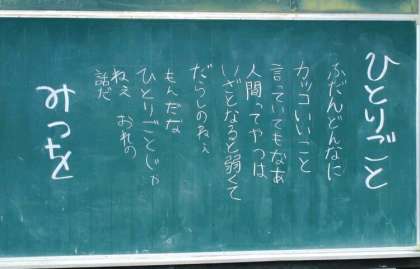 ひとりごと
ふだんどんなに
カッコいいこと
言っていてもなあ
人間ってやつは
いざとなると弱くて
だらしのねえ
もんだな
ひとりごとじゃ
ねえ おれの
話だ
みつを